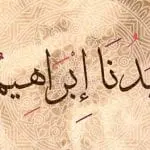 يدُنَا إِبْرَاهِيمُ